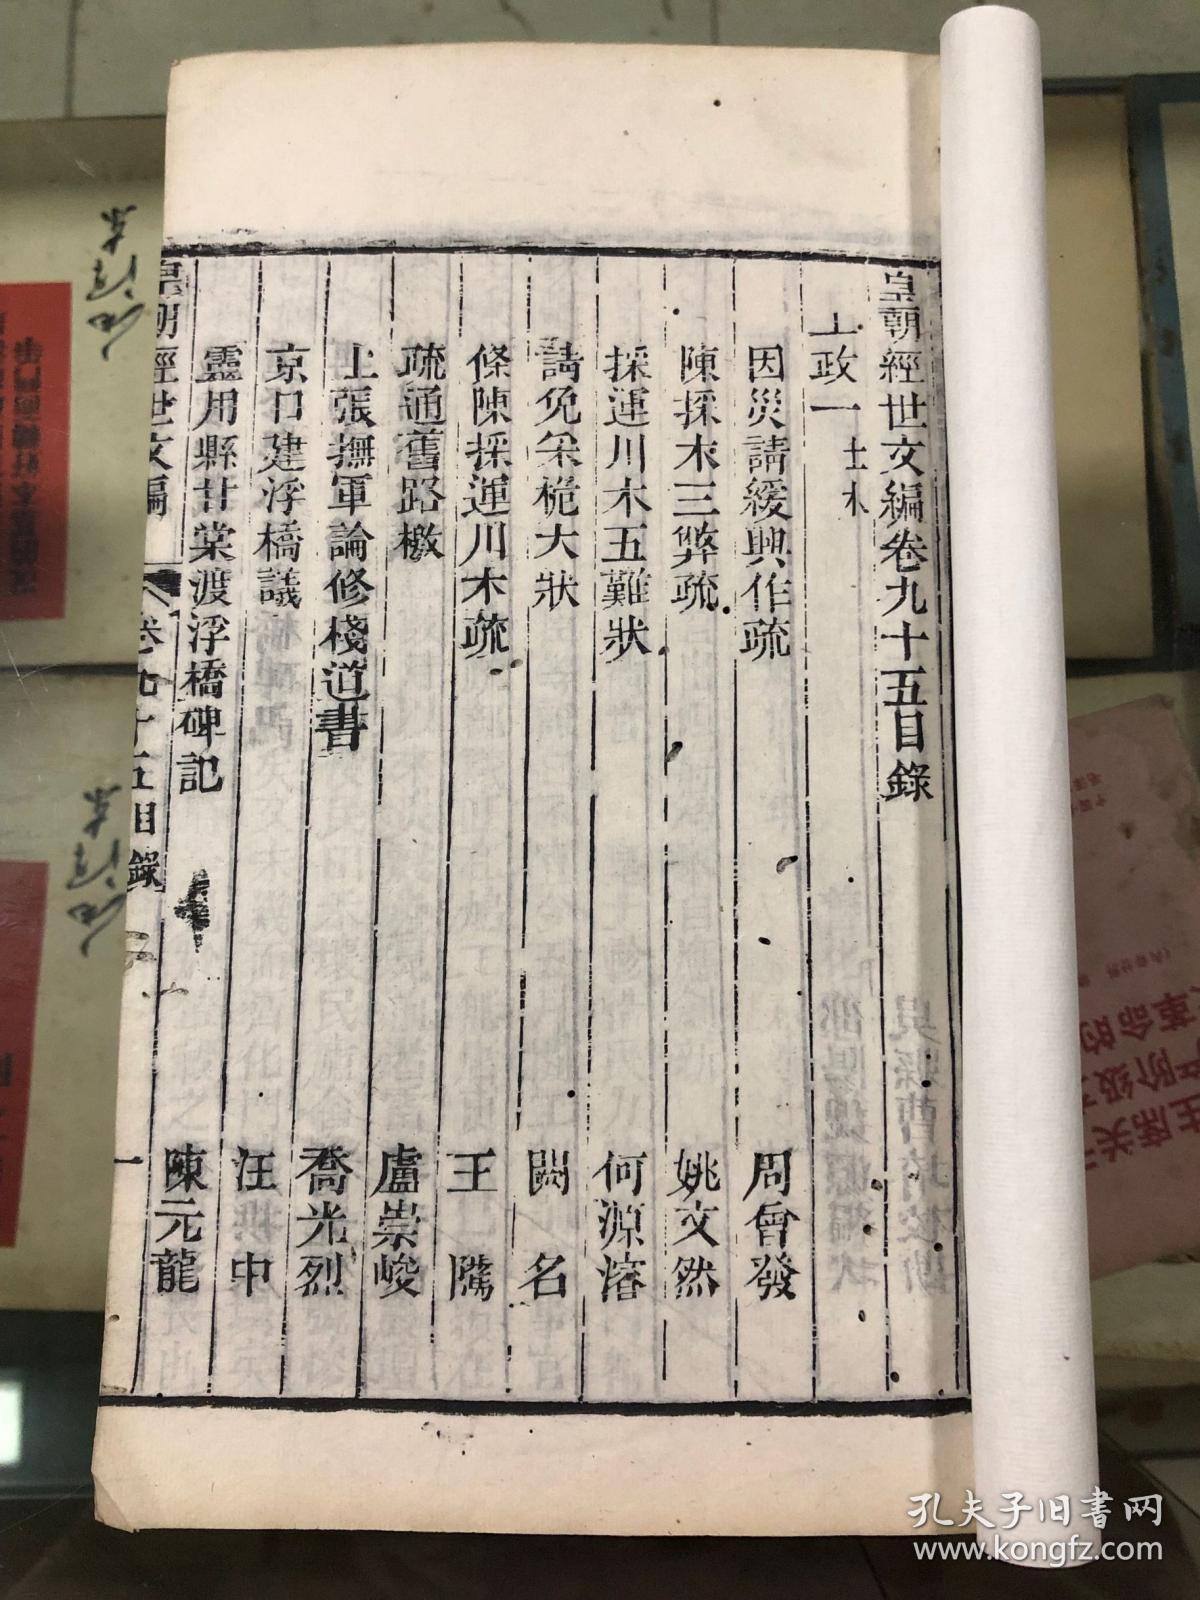 皇朝經世文編卷九十五目錄
工政一 土木
因災請緩興作疏 周曾發
陳採木三弊疏 姚文然
採運川木五難狀 何源濬
請免采桅大狀 闕名
條陳採運川木疏 王隲
疏通舊路檄 盧崇峻
上張撫軍論修棧道書 喬光烈
京口建浮橋議 汪中
靈川縣甘棠渡浮橋碑記 陳元龍
皇朝經世文編 卷九十五目錄 一
孔夫子旧书网
www.kongfz.com